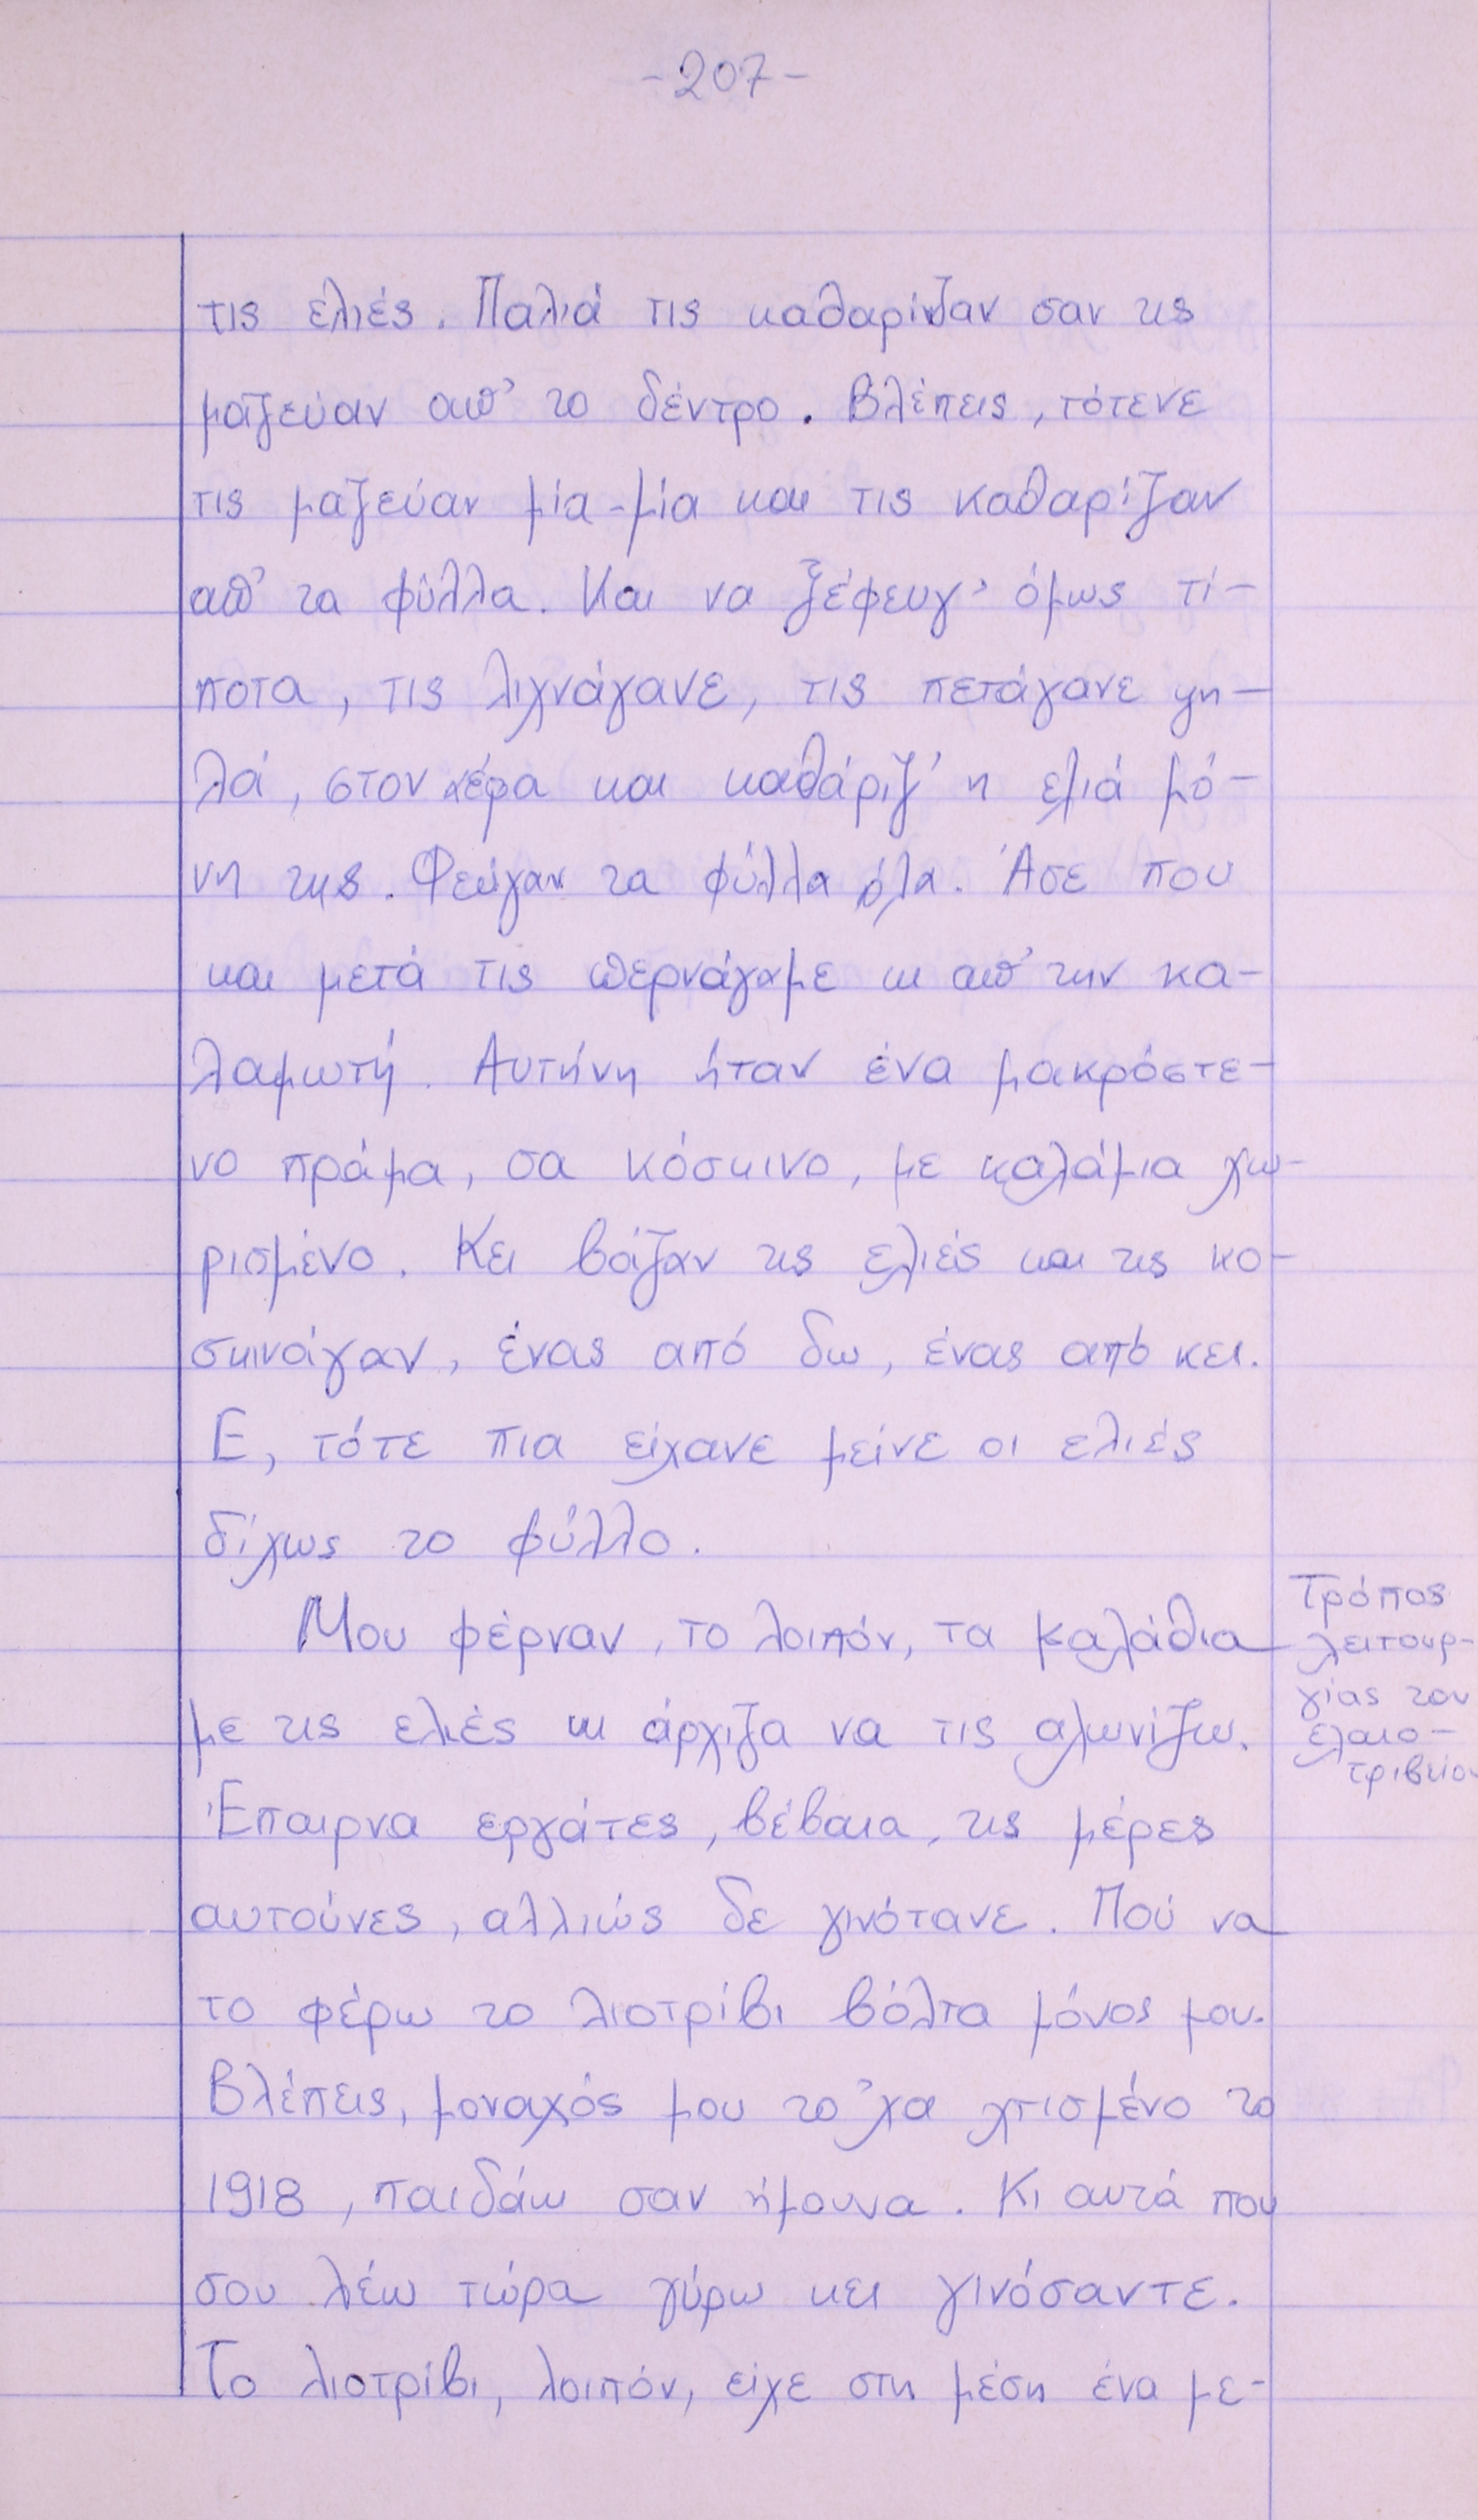 -207-
τις ελιές. Παλιά τις καθαρίζαν σαν τις
μαζεύαν απ' το δέντρο. Βλέπεις, τότενε
τις μαζεύαν μία-μία και τις καθαρίζαν
απ' τα φύλλα. Και να ξέφευγ' όμως τί-
ποτα, τις λιχνάγανε, τις πετάγανε ψη-
λά, στον αέρα και καθάριζ' η ελιά μό-
νη της. Φεύγαν τα φύλλα όλα. Άσε που
και μετά τις περνάγαμε κι απ' την κα-
λαμωτή. Αυτήνη ήταν ένα μακρόστε-
νο πράμα, σα κόσκινο, με καλάμια χω-
ρισμένο. Κει βάζαν τις ελιές και τις κο-
σκινάγαν, ένας από δω, ένας από κει.
Ε, τότε πια είχανε μείνε οι ελιές
δίχως το φύλλο.
Μου φέρναν, το λοιπόν, τα καλάθια
με τις ελιές κι άρχιζα να τις αλωνίζω.
Έπαιρνα εργάτες, βέβαια, τις μέρες
αυτούνες, αλλιώς δε γινότανε. Πού να
το φέρω το λιοτρίβι βόλτα μόνος μου.
Βλέπεις, μοναχός μου το 'χα χτισμένο το
1918, παιδάκι σαν ήμουνα. Κι αυτά που
σου λέω τώρα γύρω κει γινόσαντε.
Το λιοτρίβι, λοιπόν, είχε στη μέση ένα με-
Τρόπος
λειτουρ-
γίας του
ελαιο-
τριβείου